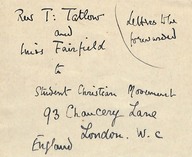 Rev T: Tatlow
and
Miss Fairfield
to
Student Christian Movement
93 Chancery Lane
London. W.C
England
Letters to be
forwarded